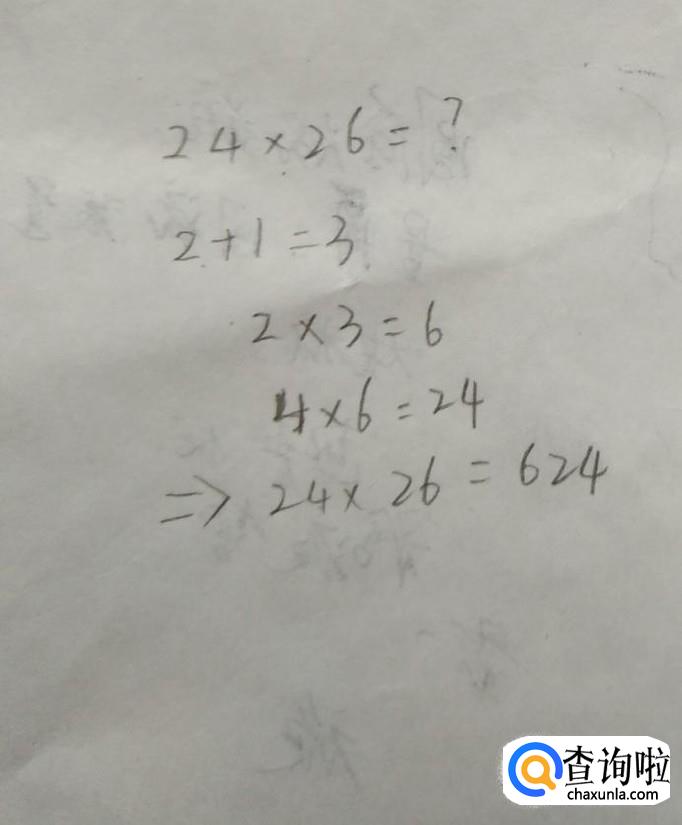 24×26=?
2+1=3
2×3=6
4×6=24
⇒ 24×26=624
查询啦
chaxunla.com